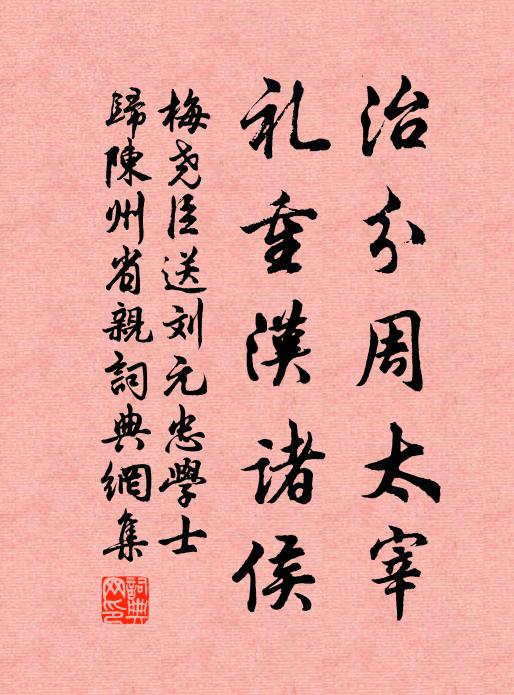 治分周太宰
礼重漢諸侯
梅尧臣送刘元忠學士
歸陳州省親詞典網集
詞典网印